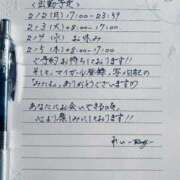 〈出勤予定〉
2/2(月)17:00-23:59
2/3(火)18:00-17:00
2/4(水)お休み
2/5(木)18:00-17:00
ご予約お待ちしております!!
そして、マイガール登録、写メ日記の
「みたよ」、ありがとうございます!!
あなたにお会いできる日を、
心より楽しみにしております!
れい